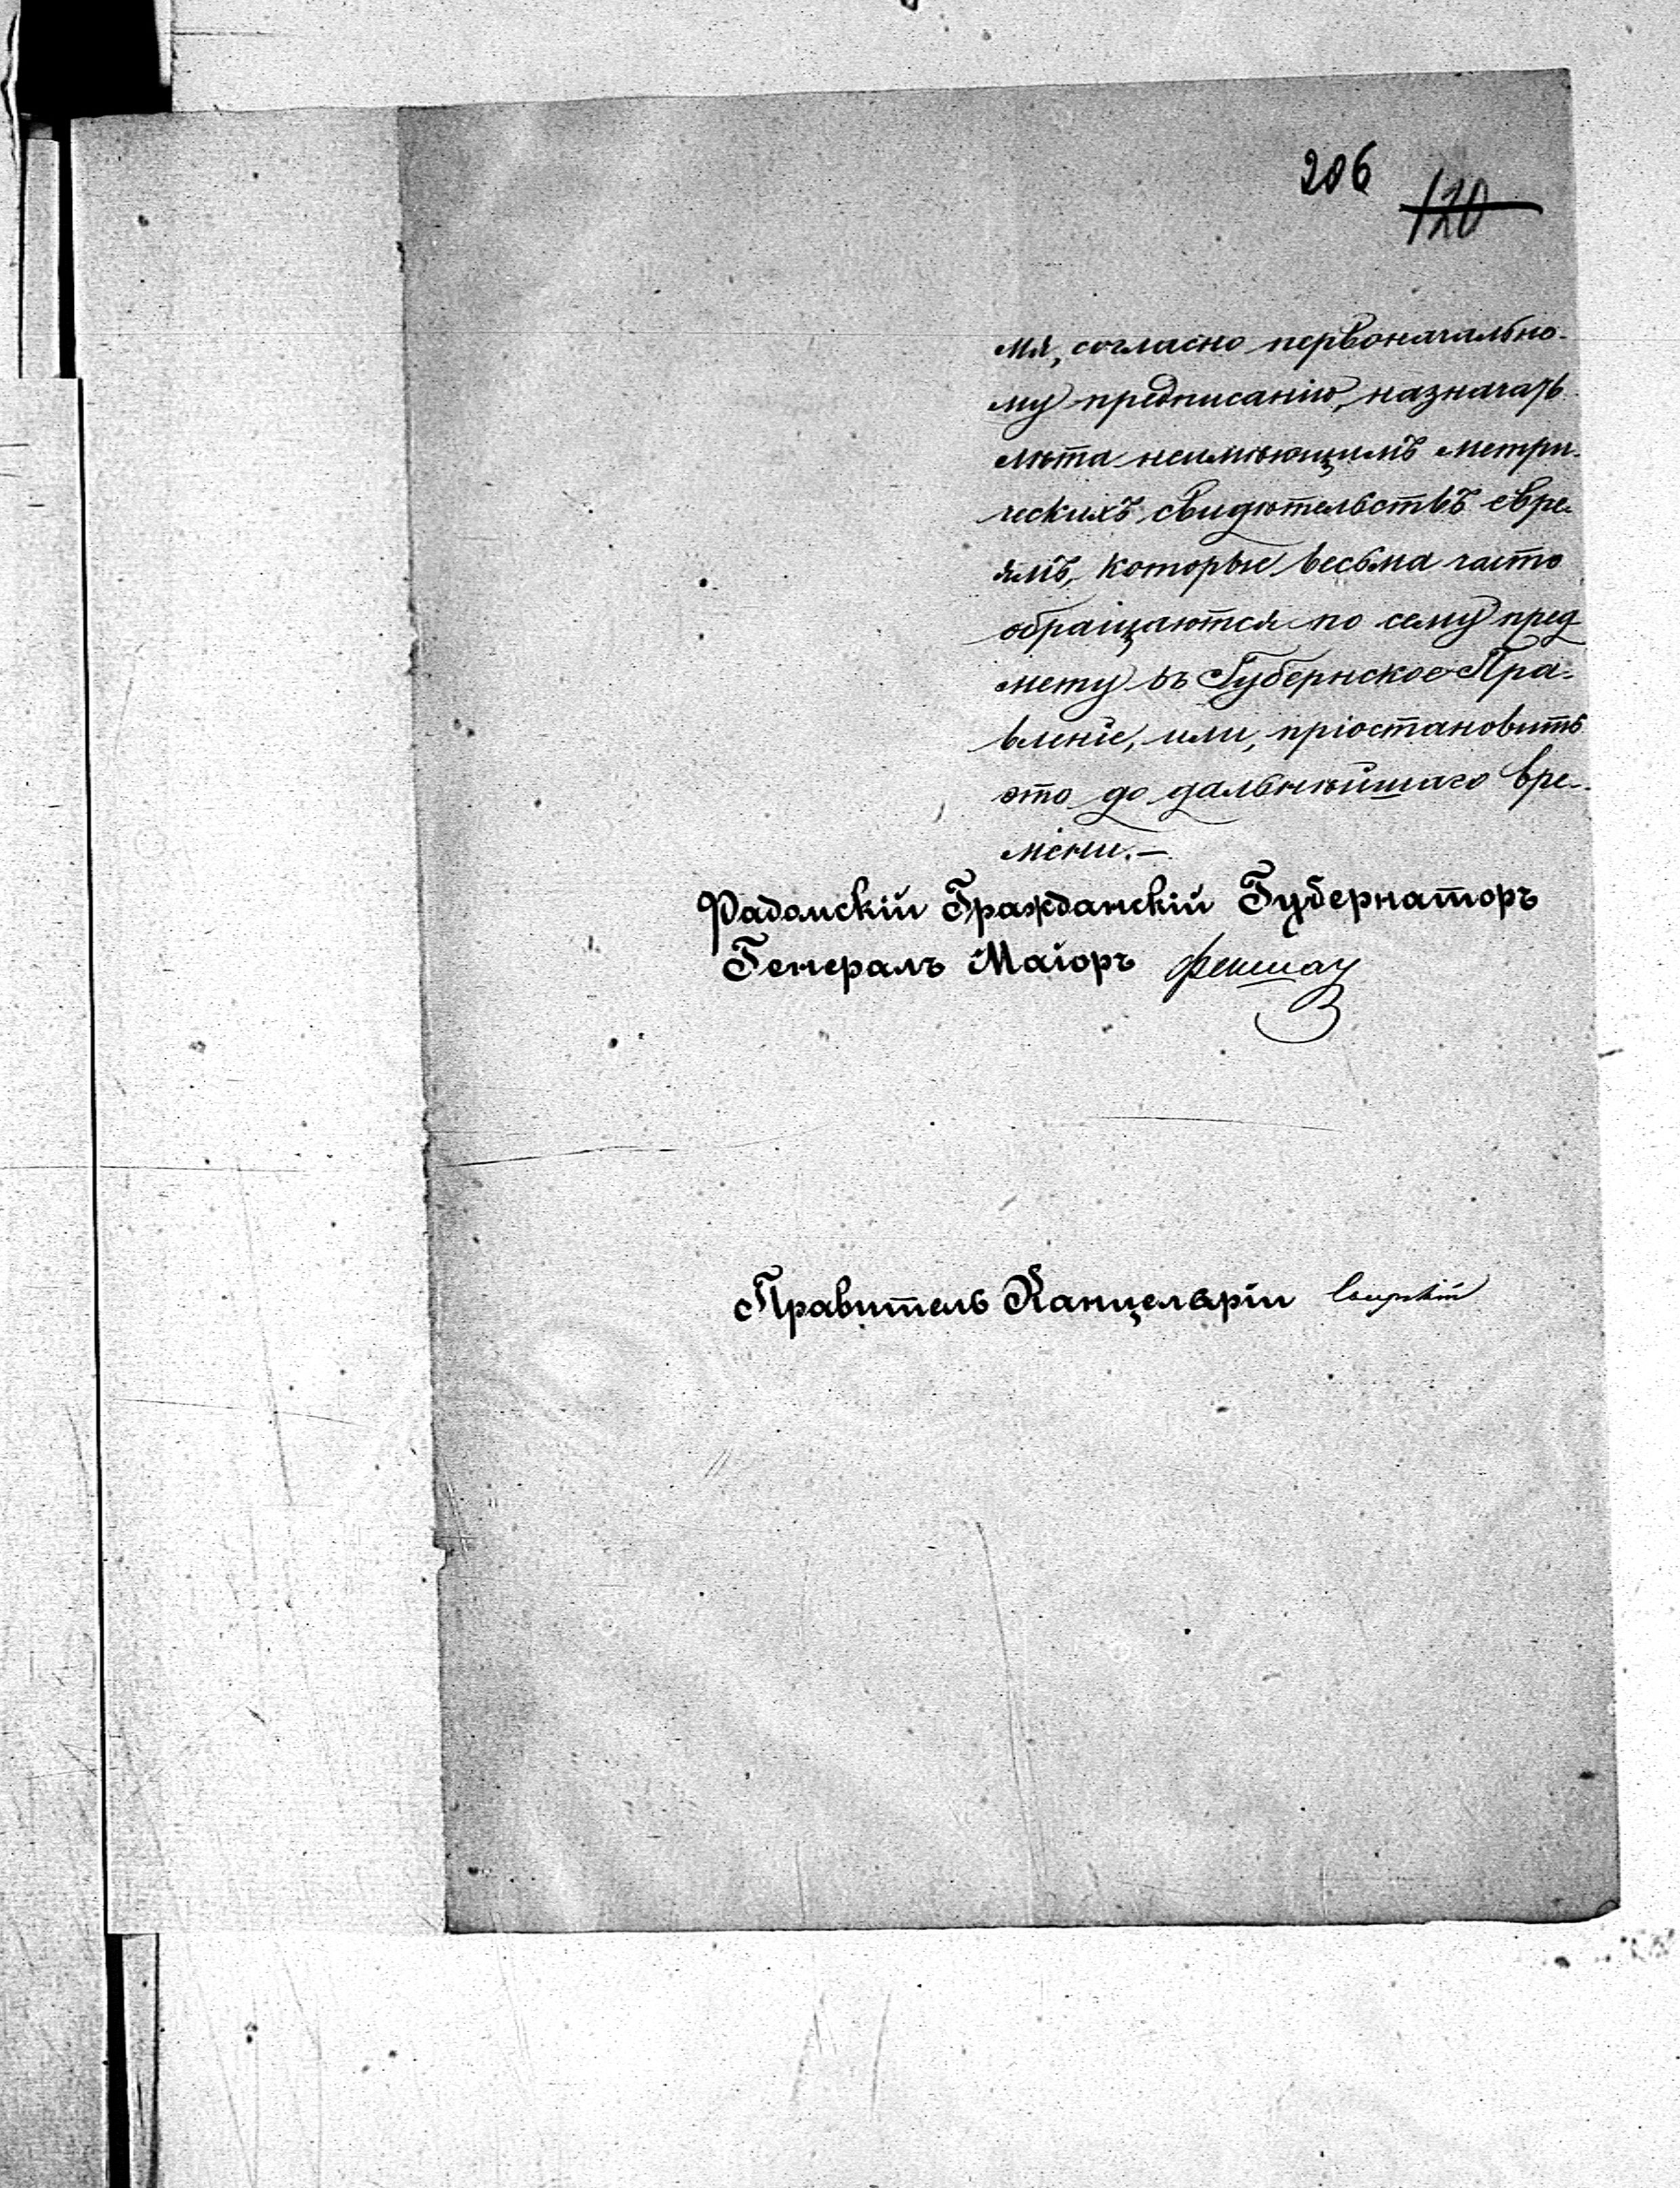 206
120
мя, согласно первоначально-
му предписанію, назначать
лѣта неимѣющимъ метри-
ческихъ свидѣтельствъ евре-
ямъ, которые весьма часто
обращаются по сему пред
мету въ Губернское Пра-
вленіе, или, пріостановить
это до дальнѣйшаго вре-
мени.—
Радомскій Гражданскій Губернаторъ
Генералъ Маіоръ
Правитель Канцеляріи